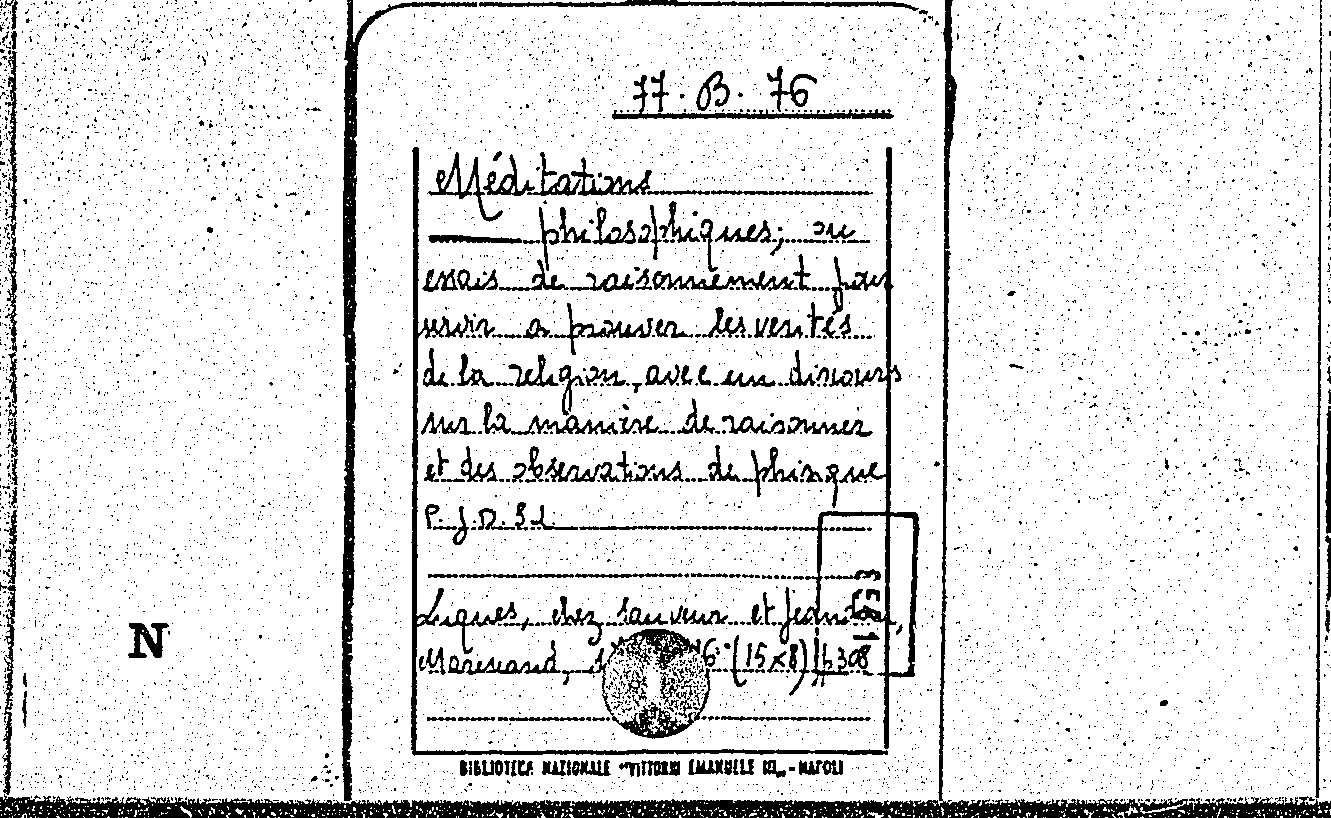 77.B.76
Méditations
philosophiques; ou
essais de raisonnement pour
servir a prouver les verités
de la religion, avec un discours
sur la manière de raisonner
et des observations de phisique
P. J. D.
Luques, chez sauveur et Jean
Marescand, (15x8) p 308
1553
N
BIBLIOTECA NAZIONALE "VITTORIO EMANUELE III" - NAPOLI